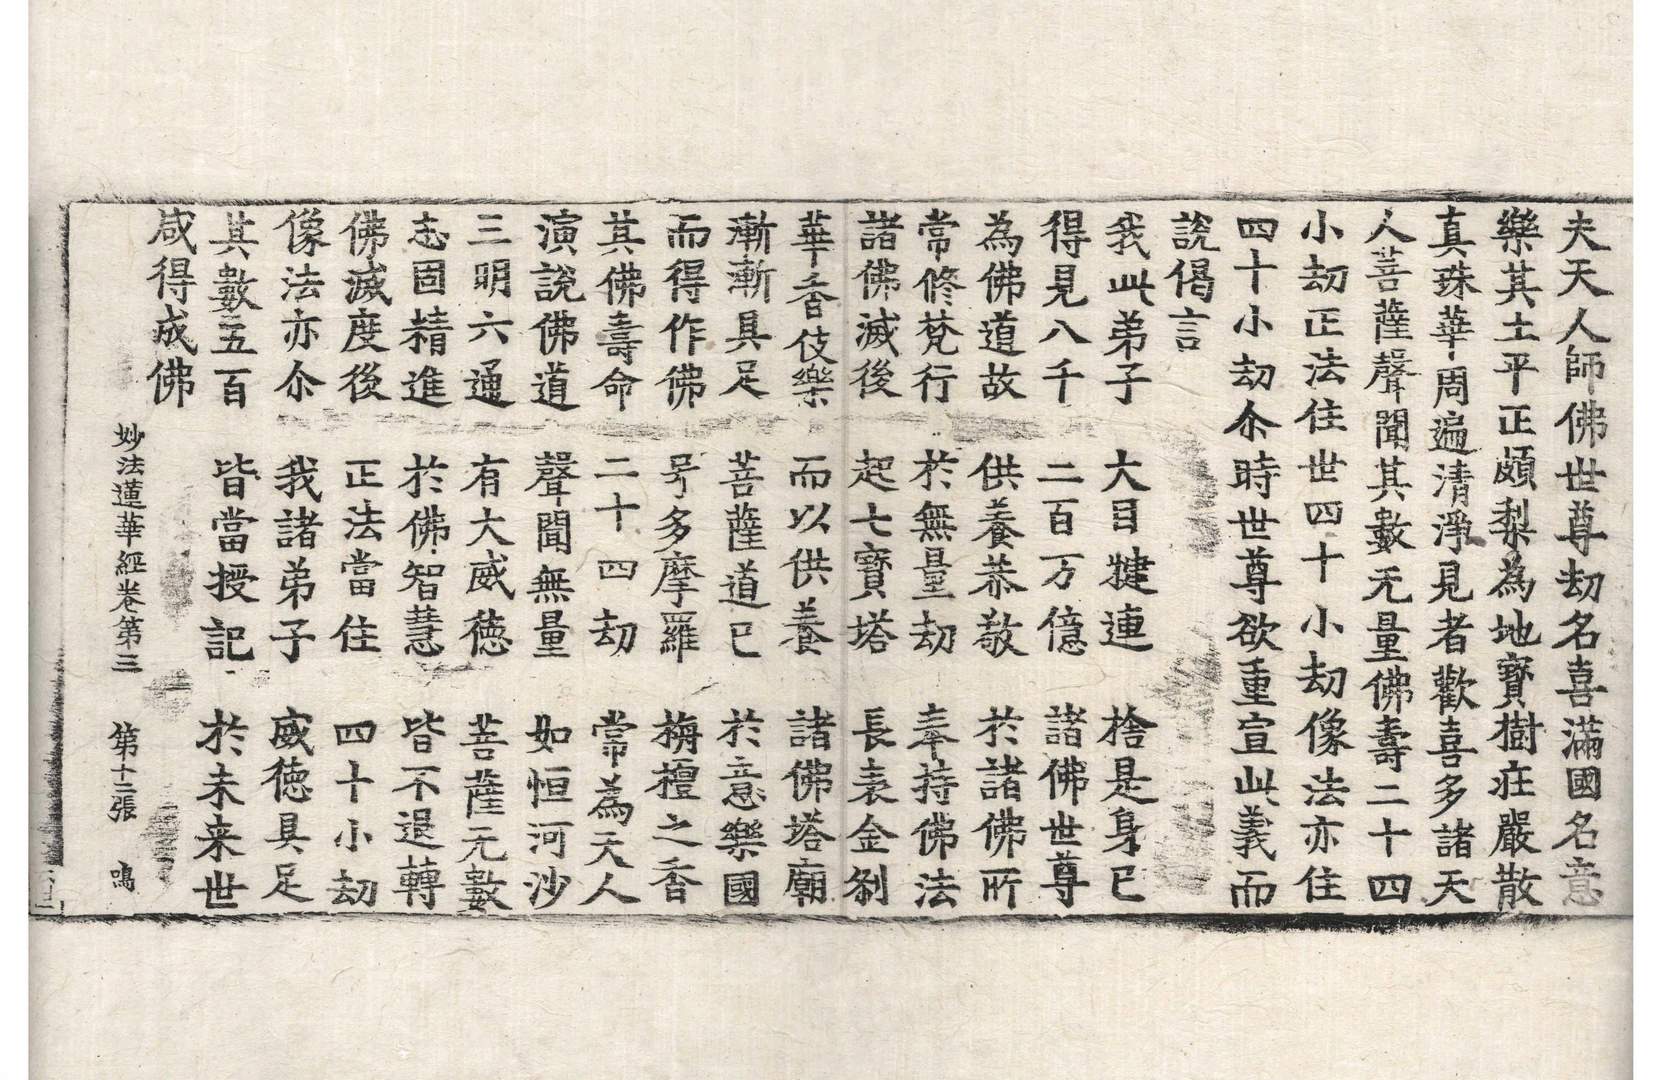 夫天人師佛世尊劫名喜滿國名意
樂其土平正頗梨為地寶樹庄嚴散
真珠華周遍清淨見者歡喜多諸天
人菩薩聲聞其數无量佛壽二十四
小劫正法住世四十小劫像法亦住
四十小劫尒時世尊欲重宣此義而
說偈言
我此弟子 大目犍連 捨是身已
得見八千 二百万億 諸佛世尊
為佛道故 供養恭敬 於諸佛所
常修梵行 於無量劫 奉持佛法
諸佛滅後 起七寶塔 長表金剎
華香伎樂 而以供養 諸佛塔廟
漸漸具足 菩薩道已 於意樂國
而得作佛 号多摩羅 栴檀之香
其佛壽命 二十四劫 常為天人
演說佛道 聲聞無量 如恒河沙
三明六通 有大威德 菩薩无數
志固精進 於佛智慧 皆不退轉
佛滅度後 正法當住 四十小劫
像法亦尒 我諸弟子 威德具足
其數五百 皆當授記 於未来世
咸得成佛
妙法蓮華經卷第三 第十二張 鳴